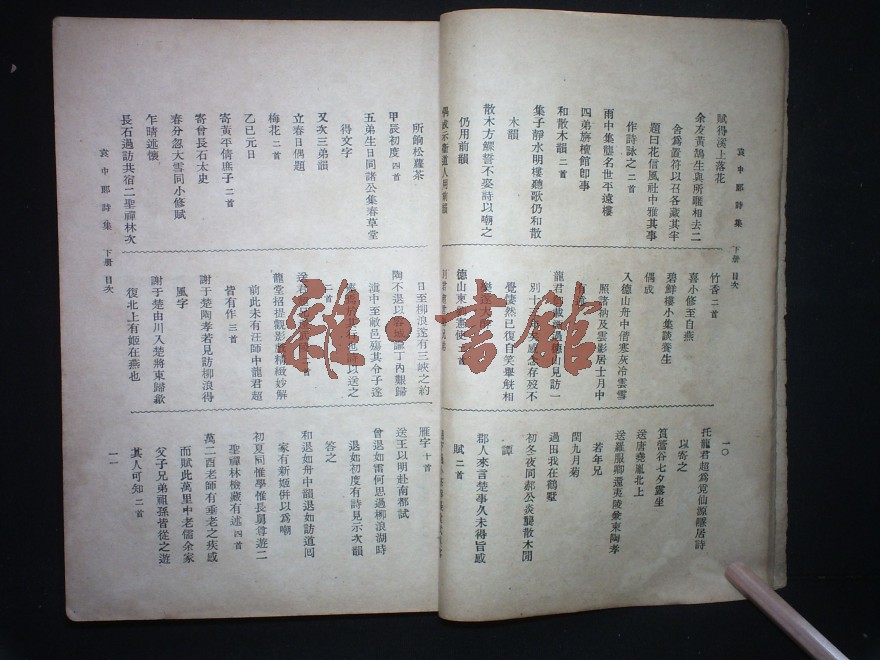 袁中郎詩集 下册 目次
賦得溪上落花
余友黃鵠生與所暱相去二
舍爲置符以召各藏其半
題曰花信風社中雅其事
作詩詠之 二首
雨中集龔名世平遠樓
四弟旃檀館卽事
和散木韻 二首
集子靜水明樓聽歌仍和散
木韻
散木方解誓不娶詩以嘲之
仍用前韻
竹香 二首
喜小修至自燕
碧鮮樓小集談養生
偶成
入德山舟中借寒灰冷雲雪
照諸衲及雲影居士月中
龍君
別十三
覺悽然已復自笑舉觥相
德山東
托龍君超爲覓仙源隱居詩
以寄之
篔簹谷七夕露坐
送唐堯胤北上
送羅服卿還夷陵兼柬陶孝
若年兄
閏九月菊
過田我在鶴墅
初冬夜同郝公炎龔散木閒
譚
郡人來言楚事久未得旨感
賦 二首
一〇
袁中郎詩集 下册 目次
所餉松蘿茶
甲辰初度 四首
五弟生日同諸公集春草堂
得文字
又次三弟韻
立春日偶題
梅花 二首
乙巳元日
寄黃平倩庶子 二首
寄曾長石太史
春分忽大雪同小修賦
乍晴述懷
長石過訪共宿二聖禪林次
日至柳浪遂有三峽之約
陶不退以
丁內艱歸
澧中至敝邑殤其介子遂
也
以送之
二首
龍堂招提觀影
精緻妙解
前此未有汪師中龍君超
皆有作 三首
謝于楚陶孝若見訪柳浪得
風字
謝于楚由川入楚將東歸歙
復北上有姬在燕也
雁字 十首
送王以明赴南都試
曾退如雷何思過柳浪湖時
退如初度有詩見示次韻
答之
和退如舟中韻退如訪道囘
家有新姬倂以爲嘲
初夏同惟學惟長舅尊遊二
聖禪林檢藏有述 四首
萬二酉老師有垂老之疾感
而賦此萬里中老儒余家
父子兄弟祖孫皆從之遊
其人可知 二首
一一
雜·書館